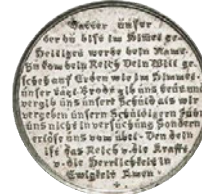 Vatter unser
der du bist im Himel ge-
Heiliget werde dein Name.
Zu kom dein Reich Dein Will ge-
scheh auf Erden wie im Himmel.
unser täg. Brodt gib uns heut und
vergib uns unsere Schuld als wir
vergeben unsern Schuldigern Führ
uns nicht in versuchung Sondern
erlöß uns vom übel. Den dein
ist das Reich u. die Krafft
u. die Herrlichkeit in
Ewigkeit Amen.